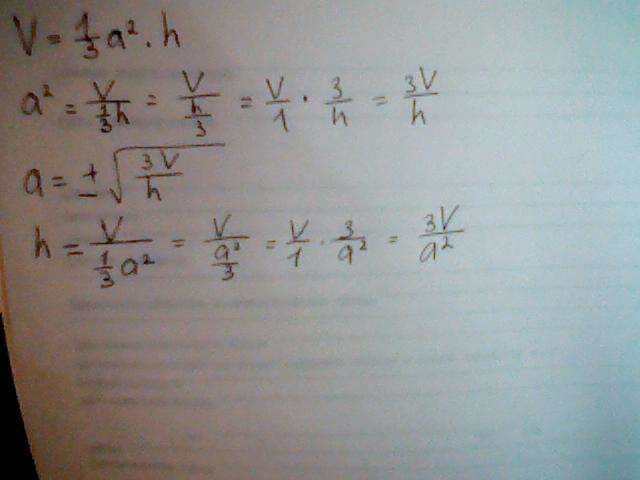 V = 1/3 a² · h
a² = V/(1/3 h) = V/(h/3) = V/1 · 3/h = 3V/h
a = ± √(3V/h)
h = V/(1/3 a²) = V/(a²/3) = V/1 · 3/a² = 3V/a²